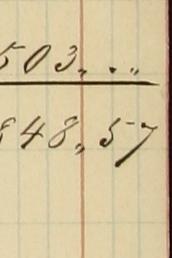 503,..,,
848,57